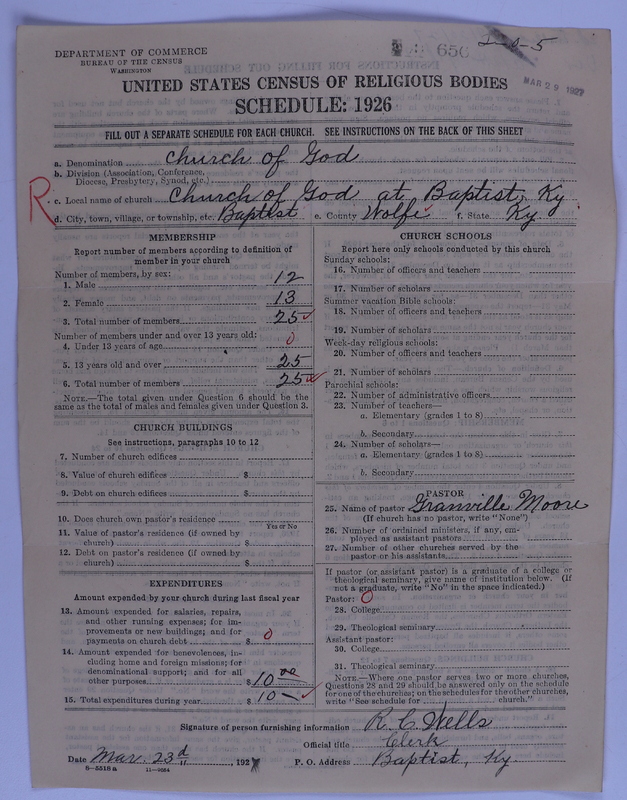 DEPARTMENT OF COMMERCE
BUREAU OF THE CENSUS
WASHINGTON
650
2-0-5
MAR 29 1927
UNITED STATES CENSUS OF RELIGIOUS BODIES
SCHEDULE: 1926
FILL OUT A SEPARATE SCHEDULE FOR EACH CHURCH. SEE INSTRUCTIONS ON THE BACK OF THIS SHEET
a. Denomination Church of God
b. Division (Association, Conference,
Diocese, Presbytery, Synod, etc.)
R c. Local name of church Church of God at Baptist, Ky.
d. City, town, village, or township, etc. Baptist e. County Wolfe f. State Ky
MEMBERSHIP
Report number of members according to definition of
member in your church
Number of members, by sex:
1. Male 12
2. Female 13
3. Total number of members 25
Number of members under and over 13 years old:
4. Under 13 years of age 0
5. 13 years old and over 25
6. Total number of members 25
NOTE.—The total given under Question 6 should be the
same as the total of males and females given under Question 3.
CHURCH BUILDINGS
See instructions, paragraphs 10 to 12
7. Number of church edifices
8. Value of church edifices $
9. Debt on church edifices $
10. Does church own pastor's residence
Yes or No
11. Value of pastor's residence (if owned by
church) $
12. Debt on pastor's residence (if owned by
church) $
EXPENDITURES
Amount expended by your church during last fiscal year
13. Amount expended for salaries, repairs,
and other running expenses; for im-
provements or new buildings; and for
payments on church debt $ 0
14. Amount expended for benevolences, in-
cluding home and foreign missions; for
denominational support; and for all
other purposes $ 10 00
15. Total expenditures during year $ 10 —
CHURCH SCHOOLS
Report here only schools conducted by this church
Sunday schools:
16. Number of officers and teachers
17. Number of scholars
Summer vacation Bible schools:
18. Number of officers and teachers
19. Number of scholars
Week-day religious schools:
20. Number of officers and teachers
21. Number of scholars
Parochial schools:
22. Number of administrative officers
23. Number of teachers—
a. Elementary (grades 1 to 8)
b. Secondary
24. Number of scholars—
a. Elementary (grades 1 to 8)
b. Secondary
PASTOR
25. Name of pastor Granville Moore
(If church has no pastor, write "None")
26. Number of ordained ministers, if any, em-
ployed as assistant pastors
27. Number of other churches served by the
pastor or his assistants
If pastor (or assistant pastor) is a graduate of a college or
theological seminary, give name of institution below. (If
not a graduate, write "No" in the space indicated.)
Pastor: 0
28. College
29. Theological seminary
Assistant pastor:
30. College
31. Theological seminary
NOTE.—Where one pastor serves two or more churches,
Questions 28 and 29 should be answered only on the schedule
for one of the churches; on the schedules for the other churches,
write "See schedule for church."
Signature of person furnishing information R. C. Wells
Official title Clerk
Date Mar. 23d, 192 P. O. Address Baptist, Ky.
8—5519a 11—9084